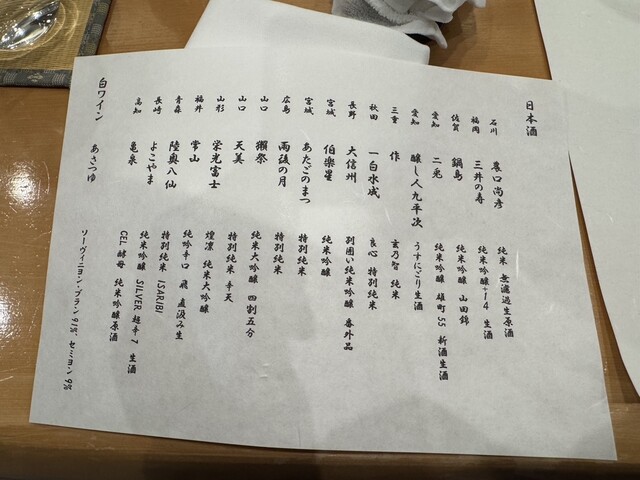 日本酒
石川 農口尚彦 純米 無濾過生原酒
福岡 三井の寿 純米吟醸+14 生酒
佐賀 鍋島 純米吟醸 山田錦
愛知 二兎 純米吟醸 雄町55 新酒生酒
愛知 醸し人九平次 うすにごり生酒
三重 作 玄乃智 純米
秋田 一白水成 良心 特別純米
長野 大信州 別囲い純米吟醸 番外品
宮城 伯楽星 純米吟醸
宮城 あたごのまつ 特別純米
広島 雨後の月 特別純米
山口 獺祭 純米大吟醸 四割五分
山口 天美 特別純米 辛天
山形 栄光冨士 煌凛 純米大吟醸
福井 常山 純吟辛口 飛 直汲み生
青森 陸奥八仙 特別純米 ISARIBI
長崎 よこやま 純米吟醸 SILVER 超辛7 生酒
高知 亀泉 CEL酵母 純米吟醸原酒
白ワイン あさつゆ ソーヴィニヨン・ブラン91%、セミヨン9%